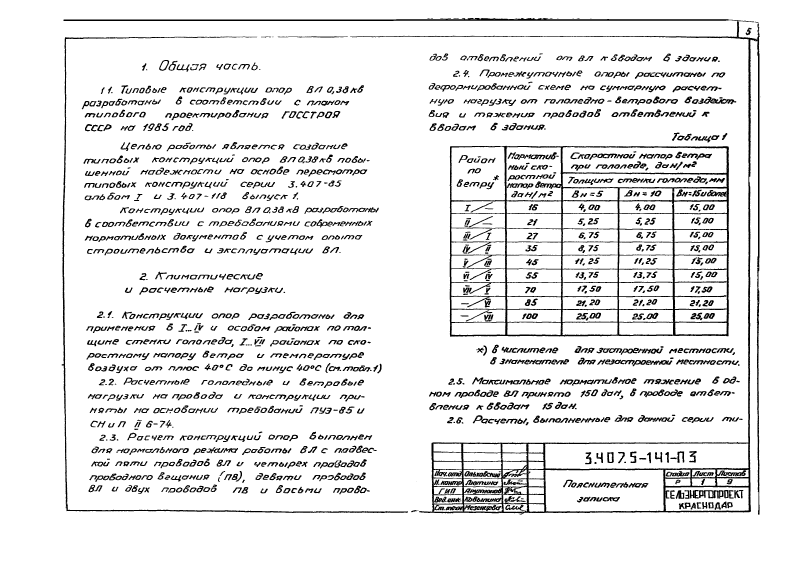 5
1. Общая часть.
1.1. Типовые конструкции опор ВЛ 0,38 кВ
разработаны в соответствии с планом
типового проектирования ГОССТРОЯ
СССР на 1985 год.
Целью работы является создание
типовых конструкций опор ВЛ 0,38 кВ повы-
шенной надежности на основе пересмотра
типовых конструкций серии 3.407-85
альбом I и 3.407-118 выпуск 1.
Конструкции опор ВЛ 0,38 кВ разработаны
в соответствии с требованиями современных
нормативных документов с учетом опыта
строительства и эксплуатации ВЛ.
2. Климатические
и расчетные нагрузки.
2.1. Конструкции опор разработаны для
применения в I...IV и особом районах по тол-
щине стенки гололеда, I...VII районах по ско-
ростному напору ветра и температуре
воздуха от плюс 40°С до минус 40°С (см. табл.1)
2.2. Расчетные гололедные и ветровые
нагрузки на провода и конструкции при-
няты на основании требований ПУЭ-85 и
СНиП II 6-74.
2.3. Расчет конструкций опор выполнен
для нормального режима работы ВЛ с подвес-
кой пяти проводов ВЛ и четырех проводов
проводного вещания (ПВ), девяти проводов
ВЛ и двух проводов ПВ и восьми прово-
дов ответвлений от ВЛ к вводам в здания.
2.4. Промежуточные опоры рассчитаны по
деформированной схеме на суммарную расчет-
ную нагрузку от гололедно-ветрового воздейст-
вия и тяжения проводов ответвлений к
вводам в здания.
Таблица 1
Район по ветру* | Норматив-ный ско-ростной напор ветра даН/м² | Скоростной напор ветра при гололеде, даН/м²
Толщина стенки гололеда, мм
Вн=5 | Вн=10 | Вн=15 и более
I/— | 16 | 4,00 | 4,00 | 15,00
II/— | 21 | 5,25 | 5,25 | 15,00
III/I | 27 | 6,75 | 6,75 | 15,00
IV/II | 35 | 8,75 | 8,75 | 15,00
V/III | 45 | 11,25 | 11,25 | 15,00
VI/IV | 55 | 13,75 | 13,75 | 15,00
VII/V | 70 | 17,50 | 17,50 | 17,50
—/VI | 85 | 21,20 | 21,20 | 21,20
—/VII | 100 | 25,00 | 25,00 | 25,00
*) в числителе для застроенной местности,
в знаменателе для незастроенной местности.
2.5. Максимальное нормативное тяжение в од-
ном проводе ВЛ принято 150 даН, в проводе ответ-
вления к вводам 15 даН.
2.6. Расчеты, выполненные для данной серии ти-
3.407.5-141-ПЗ
Нач. отд. Ольховский
Н. контр. Лютина
ГИП
Вед. инж. Ковылина
Ст. техн.
Пояснительная
записка
Стадия Лист Листов
Р 1 9
СЕЛЬЭНЕРГОПРОЕКТ
КРАСНОДАР